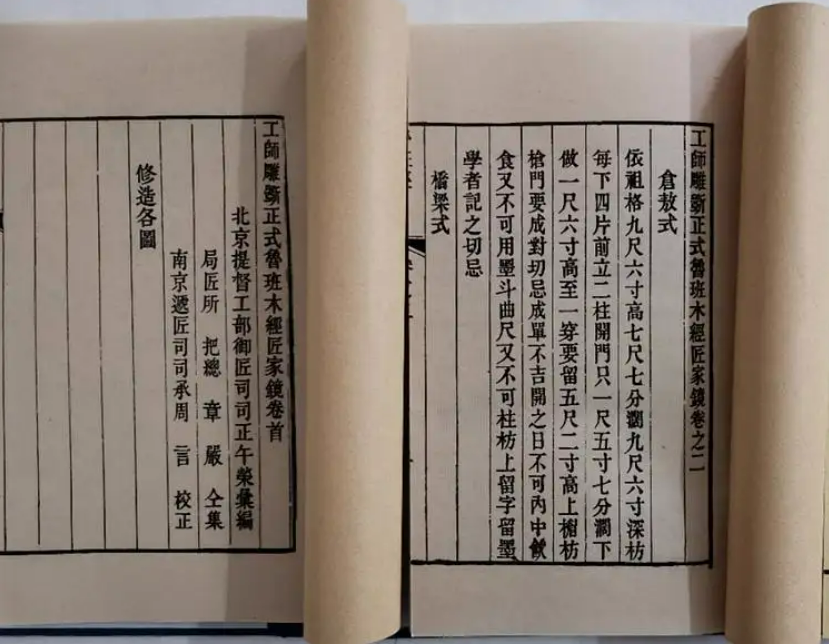 工師雕斵正式魯班木經匠家鏡卷之二
倉敖式
依祖格九尺六寸高七尺七分濶九尺六寸深枋
每下四片前立二柱開門只一尺五寸七分濶下
做一尺六寸高至一穿要留五尺二寸高上楣枋
槍門要成對切忌成單不吉開之日不可內中飲
食又不可用墨斗曲尺又不可柱枋上留字留墨
學者記之切忌
橋梁式
工師雕斵正式魯班木經匠家鏡卷首
北京提督工部御匠司司正午榮彙編
局匠所 把總 章 嚴 仝集
南京遞匠司司承周 言 校正
修造各圖